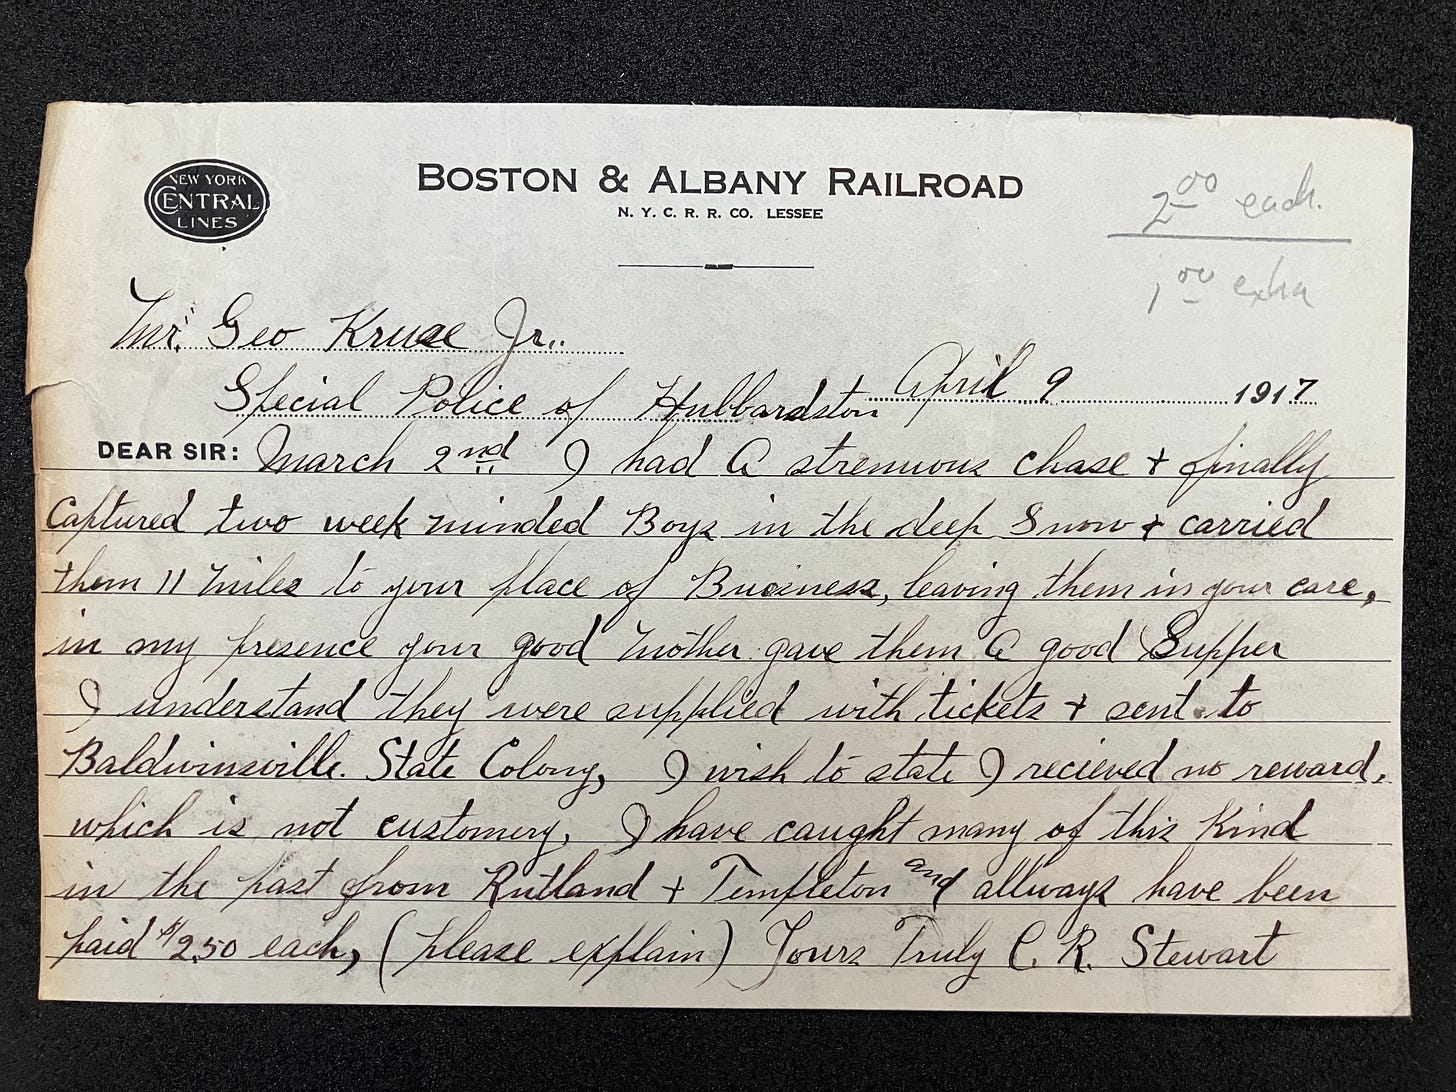 NEW YORK
CENTRAL
LINES
BOSTON & ALBANY RAILROAD
N. Y. C. R. R. CO. LESSEE
2 00 each.
1 00 extra
Mr. Geo Kruse Jr..
Special Police of Hubbardston April 9 1917
DEAR SIR: March 2nd I had A strenuous chase + finally
Captured two week minded Boys in the deep Snow + carried
them 11 miles to your place of Business, leaving them in your care,
in my presence your good Mother gave them A good Supper
I understand they were supplied with tickets + sent to
Baldwinsville. State Colony, I wish to state I recieved no reward,
which is not customery, I have caught many of this Kind
in the past from Rutland + Templeton and allways have been
paid $2.50 each, (please explain) Yours Truly C. R. Stewart